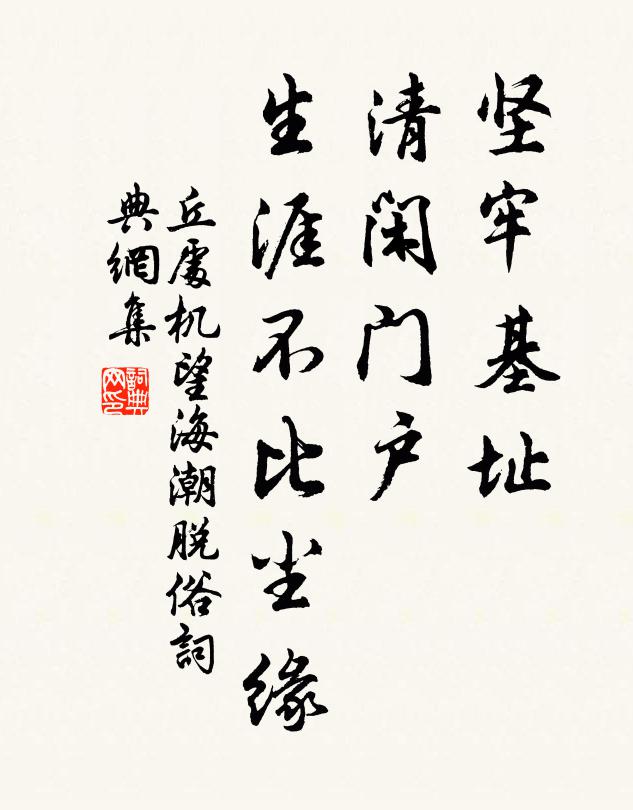 坚牢基址
清闲门户
生涯不比尘缘
丘處机望海潮脱俗詞
典網集
詞典
网印